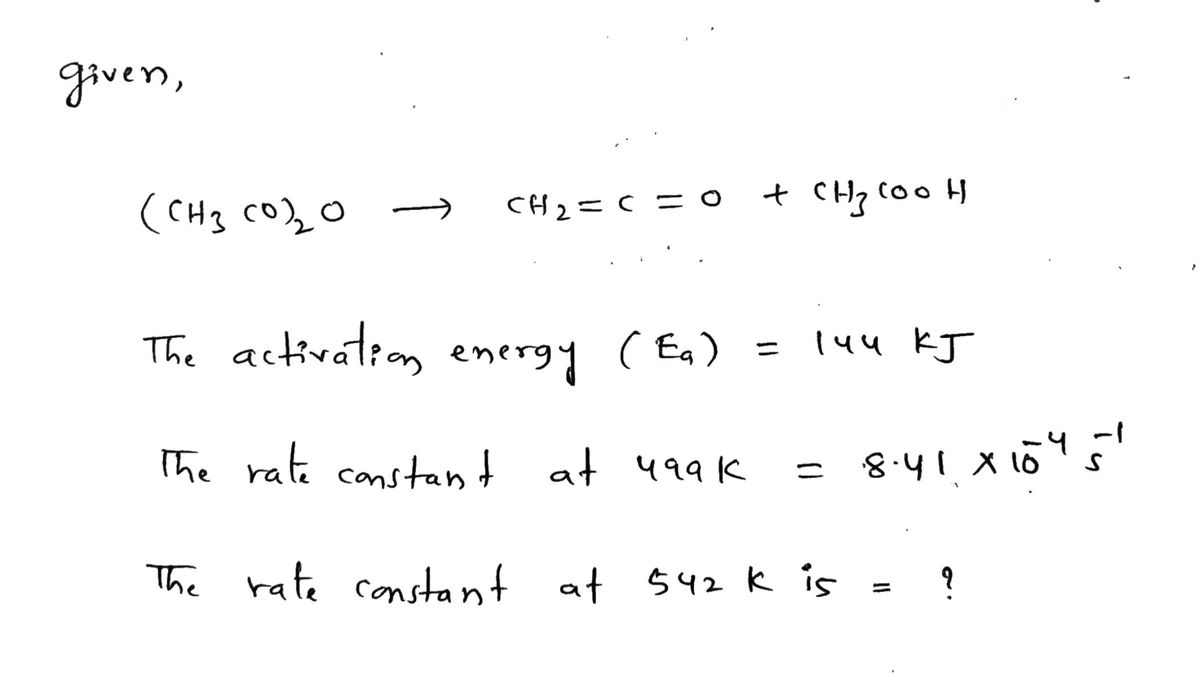 given,
(CH3 CO)2 O → CH2 = C = O + CH3 COO H
The activation energy (Ea) = 144 KJ
The rate constant at 499 K = 8.41 × 10^-4 s^-1
The rate constant at 542 K is = ?